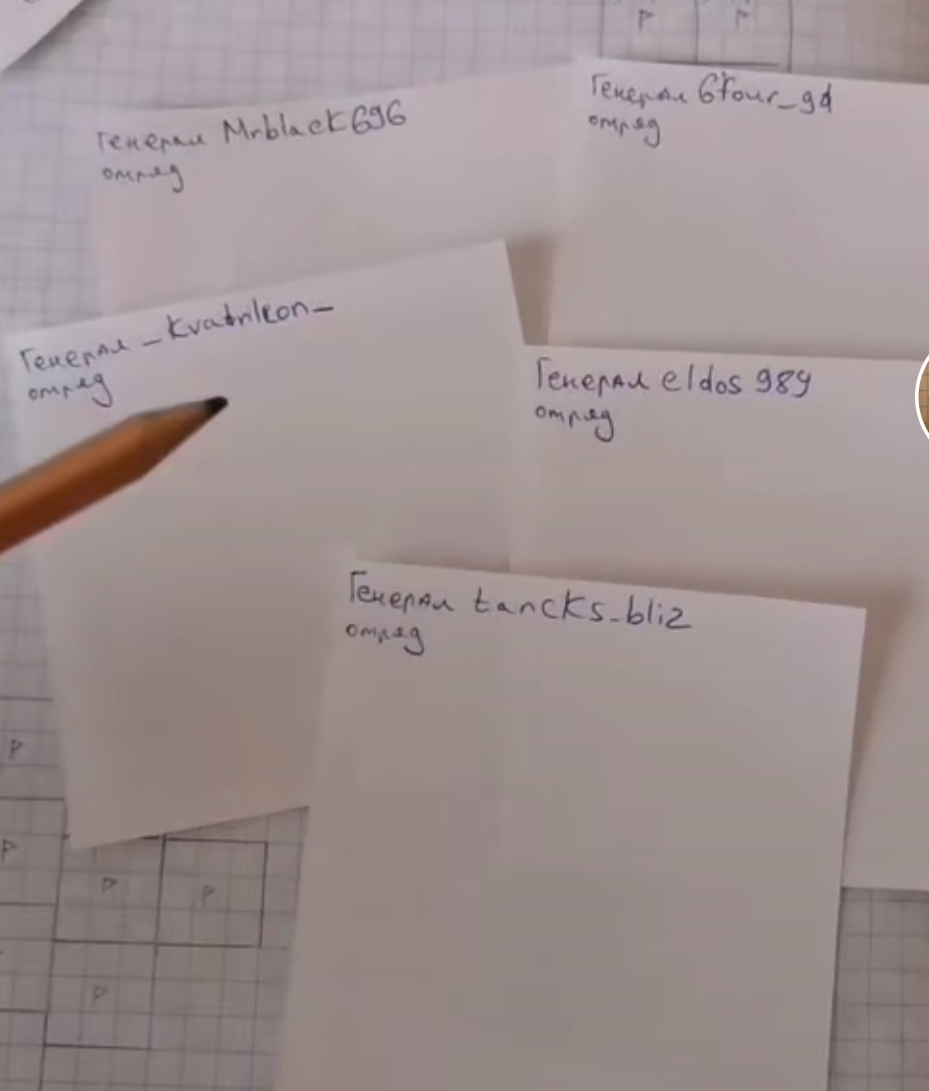 Р Р
Генерал Mrblack696
отряд
Генерал 6four_gd
отряд
Генерал _Kvadrilion_
отряд
Генерал eldos 989
отряд
Генерал tancks_bliz
отряд
Р
Р
Р Р
Р